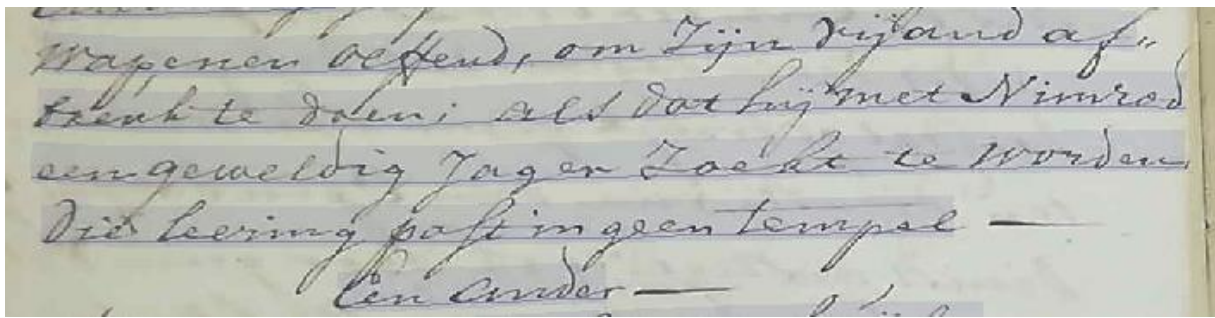 wapenen oeffend, om Zijn vijand af„
breuk te doen; als dat hij met Nimrod
een geweldig Jager Zocht te worden
Die leering past in geen tempel —
Een ander —